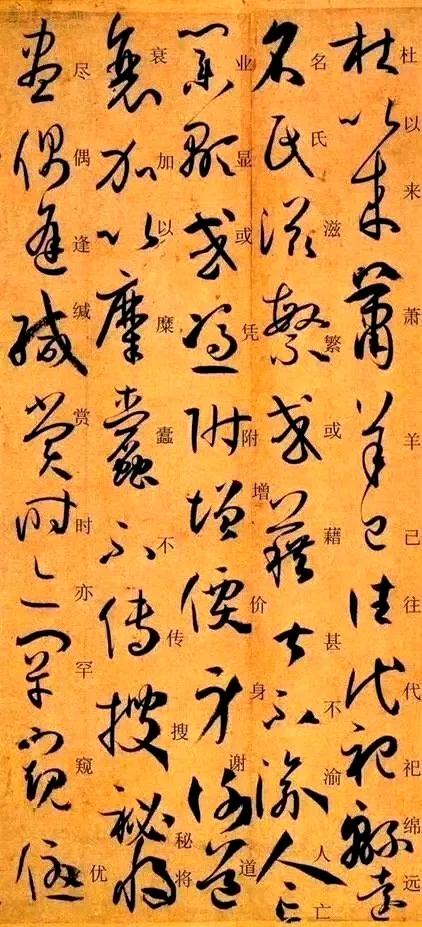 杜以来萧羊己往代祀绵远
名氏滋繁或藉甚不渝人亡
业显或凭附增价身谢道
衰加以糜蠹不传搜秘将
尽偶逢缄赏时亦罕窥优